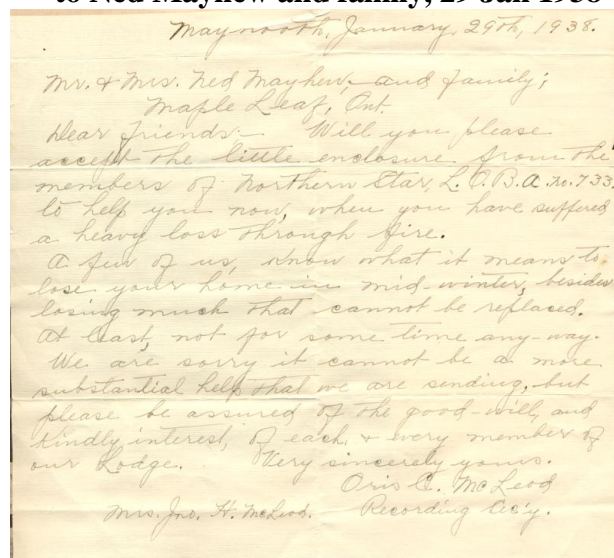 to Ned Mayhew and family, 29 Jan 1938
Maynooth, January, 29th, 1938.
Mr. & Mrs. Ned Mayhew, and family;
Maple Leaf, Ont.
Dear friends- Will you please
accept the little enclosure from the
members of Northern Star, L.O.B.A. No. 733,
to help you now, when you have suffered
a heavy loss through fire.
A few of us, know what it means to
lose your home in mid-winter, besides
losing much that cannot be replaced.
At least, not for some time any-way.
We are sorry it cannot be a more
substantial help that we are sending, but
please be assured of the good-will, and
kindly interest, of each & every member of
our Lodge. Very sincerely yours.
Oris C. McLeod
Mrs. Jno. H. McLeod. Recording